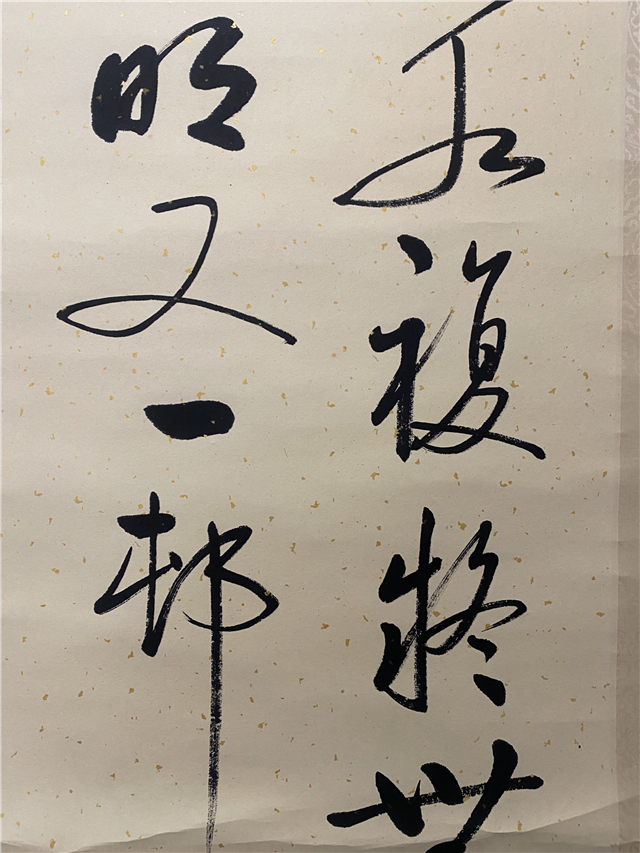 水複疑無
明又一邨